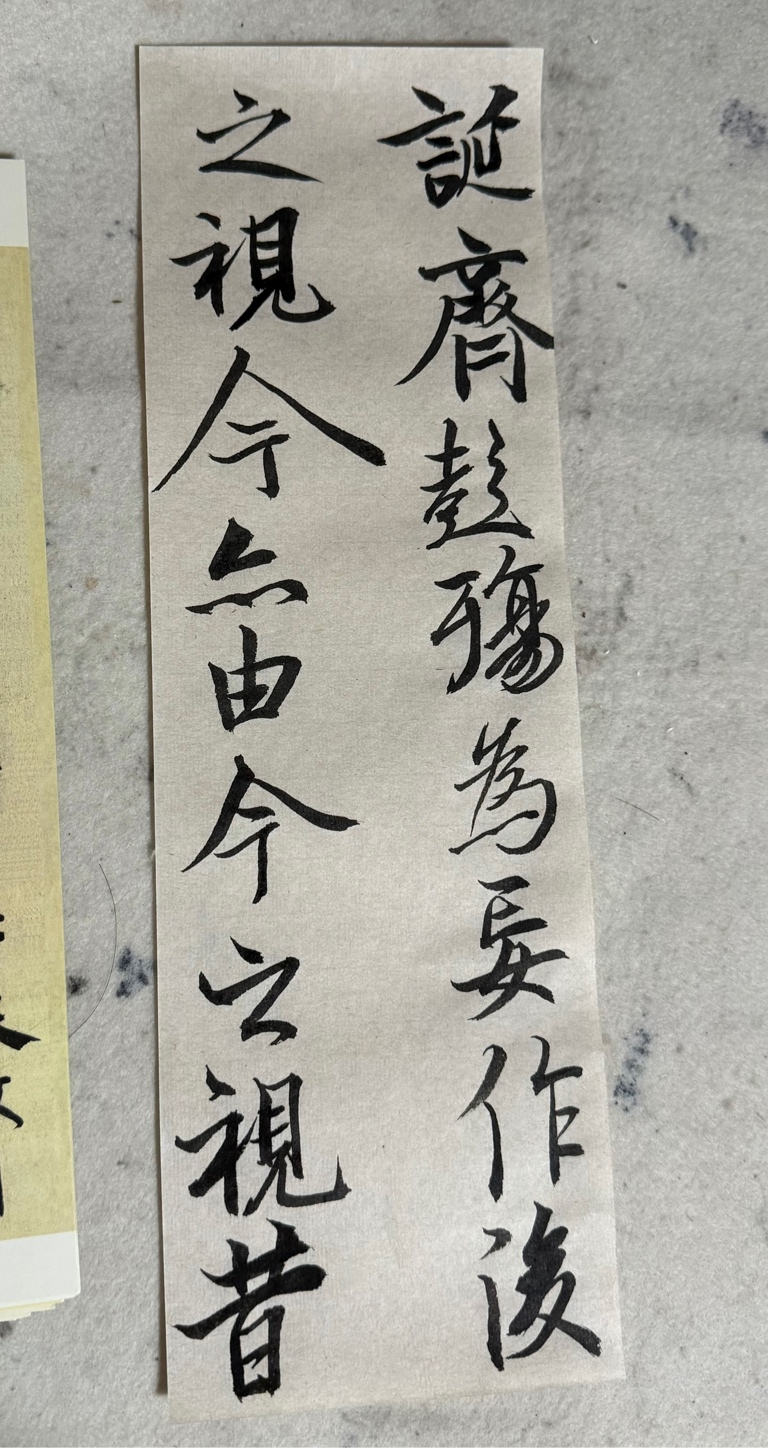 誕齊彭殤為妄作後
之視今亦由今之視昔